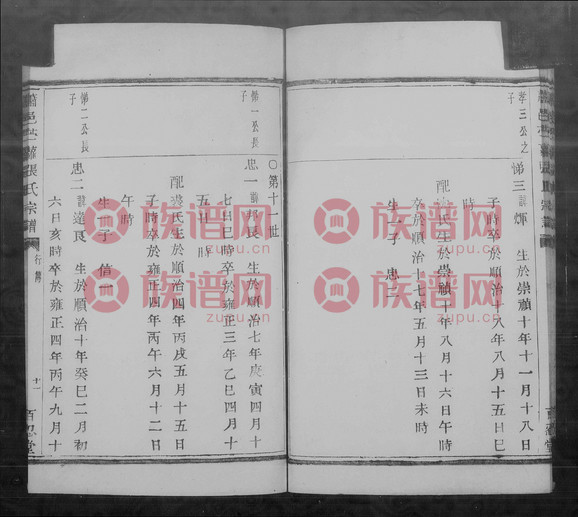 孝三公之
子
悌三 諱煇 生於崇禎十年十一月十八日
子時卒於順治十八年八月十五日巳
時
氏生於崇禎 年八月十六日午時
卒於順治十七年五月十三日未時
生一子 忠二
悌一公長
子
○第十一世
忠一 諱邦民 生於順治七年庚寅四月十
七日巳時卒於雍正三年乙巳四月十
五日 時
配 氏生於順治四年丙戌五月十五日
子時卒於雍正四年丙午六月十二日
午時
生一子 信一
悌二公長
子
忠二 諱達良 生於順治十年癸巳二月初
六日亥時卒於雍正四年丙午九月十
蕭邑 張氏宗譜
行傳
十一
百忍堂
族谱网
zupu.cn
族谱网
zupu.cn
族谱网
zupu.cn
族谱网
zupu.cn